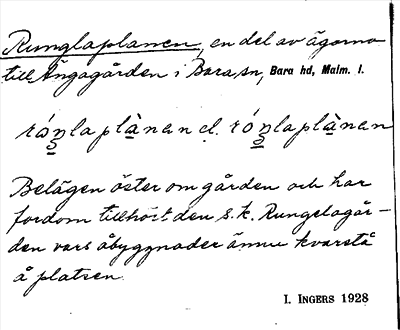 Runglaplanen, en del av ägorna
till Ängagården i Bara sn, Bara hd, Malm. l.
rón̠laplànan el. rón̠laplànan
Belägen öster om gården och har
fordom tillhört den s.k. Rungelagår-
den vars åbyggnader ännu kvarstå
å platsen.
I. INGERS 1928